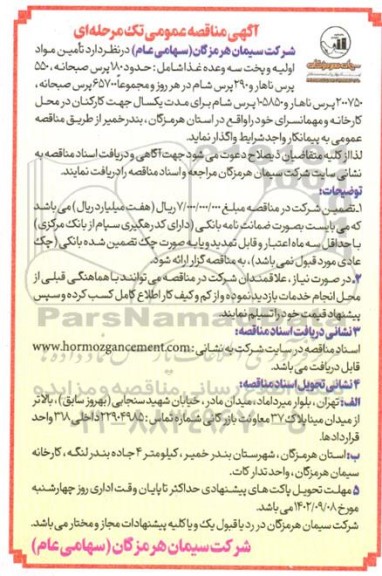 آگهی مناقصه عمومی تک مرحله‌ای
شرکت سیمان هرمزگان (سهامی عام) در نظر دارد تأمین مواد
اولیه و پخت سه وعده غذا شامل: حدود ۱۸۰ پرس صبحانه، ۵۵۰
پرس ناهار و ۲۹۰ پرس شام در هر روز و مجموعاً ۶۵۷۰۰ پرس صبحانه،
۲۰۰۷۵۰ پرس ناهار و ۱۰۵۸۵۰ پرس شام برای مدت یکسال جهت کارکنان در محل
کارخانه و مهمانسرای خود را واقع در استان هرمزگان، بندرخمیر از طریق مناقصه
عمومی به پیمانکار واجد شرایط واگذار نماید.
لذا از کلیه متقاضیان ذیصلاح دعوت می شود جهت آگاهی و دریافت اسناد مناقصه به
نشانی سایت شرکت سیمان هرمزگان مراجعه و اسناد مناقصه را دریافت نمایند.
توضیحات:
۱. تضمین شرکت در مناقصه مبلغ ۷/۰۰۰/۰۰۰/۰۰۰ ریال (هفت میلیارد ریال) می باشد
که می بایست بصورت ضمانت نامه بانکی (دارای کد رهگیری سپام از بانک مرکزی)
با حداقل سه ماه اعتبار و قابل تمدید و یا به صورت چک تضمین شده بانکی (چک
عادی مورد قبول نمی باشد)، به مناقصه گزار ارائه شود.
۲. در صورت نیاز، علاقمندان شرکت در مناقصه می توانند با هماهنگی قبلی از
محل انجام خدمات بازدید نموده و از کم و کیف کار اطلاع کامل کسب کرده و سپس
پیشنهاد قیمت خود را تسلیم نمایند.
۳ نشانی دریافت اسناد مناقصه:
اسناد مناقصه در سایت شرکت به نشانی: www.hormozgancement.com
قابل دریافت می باشد.
۴ نشانی تحویل اسناد مناقصه:
الف: تهران، بلوار میرداماد، میدان مادر، خیابان شهید سنجابی (بهروز سابق)، بالاتر
از میدان مینا پلاک ۳۷ معاونت بازرگانی شماره تماس: ۲۲۹۰۴۹۸۵ داخلی ۳۱۸ واحد
قراردادها.
ب: استان هرمزگان، شهرستان بندر خمیر، کیلومتر ۴ جاده بندر لنگه، کارخانه
سیمان هرمزگان، واحد تدارکات.
۵ مهلت تحویل پاکت های پیشنهادی حداکثر تا پایان وقت اداری روز چهارشنبه
مورخ ۱۴۰۲/۰۹/۰۸ می باشد.
شرکت سیمان هرمزگان در رد یا قبول یک و یا کلیه پیشنهادات مجاز و مختار می باشد.
شرکت سیمان هرمزگان (سهامی عام)